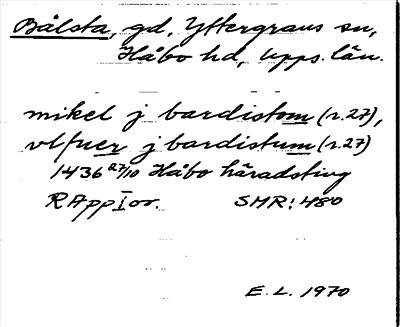 Bålsta, gd, Yttergrans sn,
Håbo hd, Upps. län.
mikel j bardistom (r.27),
vlfuer j bardistum (r.27)
1436 27/10 Håbo häradsting
RAppIor. SMR: 480
E. L. 1970